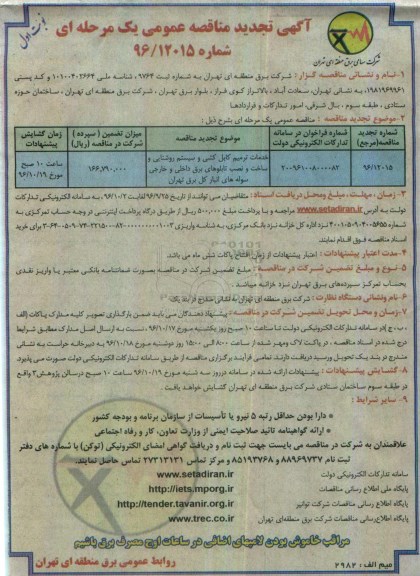 نوبت اول
آگهی تجدید مناقصه عمومی یک مرحله ای
شماره ۹۶/۱۲۰۱۵
شرکت سهامی برق منطقه ای تهران
۱-نام و نشانی مناقصه گزار: شرکت برق منطقه ای تهران به شماره ثبت ۹۷۶۴، شناسه ملی ۱۰۱۰۰۴۰۲۶۶۴ و کد پستی
۱۹۸۱۹۶۹۹۶۱، به نشانی تهران، سعادت آباد، بالاتر از کوی فراز، بلوار برق تهران، شرکت برق منطقه ای تهران، ساختمان حوزه
ستادی، طبقه سوم، بال شرقی، امور تدارکات و قراردادها
۲- موضوع تجدید مناقصه: مناقصه عمومی یک مرحله ای بشرح ذیل:
شماره تجدید مناقصه(مرجع) | شماره فراخوان در سامانه تدارکات الکترونیکی دولت | موضوع تجدید مناقصه | میزان تضمین (سپرده) شرکت در مناقصه (ریال) | زمان گشایش پیشنهادات
۹۶/۱۲۰۱۵ | ۲۰۰۹۶۱۰۰۸۰۰۰۰۸۲ | خدمات ترمیم کابل کشی و سیستم روشنایی و ساخت و نصب تابلوهای برق داخلی و خارجی سوله های انبار کل برق تهران | ۱۶۶,۷۹۰,۰۰۰ | ساعت ۱۰ صبح مورخ ۹۶/۱۰/۱۹
۳- زمان، مهلت، مبلغ ومحل دریافت اسناد: متقاضیان می توانند از تاریخ ۹۶/۹/۲۵ لغایت ۹۶/۱۰/۲ به سامانه الکترونیکی تدارکات
دولت به آدرس www.setadiran.ir مراجعه و با پرداخت مبلغ ۵۰۰,۰۰۰ ریال از طریق درگاه پرداخت اینترنتی در وجه حساب تمرکزی به
شماره ۴۰۰۱۱۰۵۰۹۰۴۰۰۵۶۵۵ نزد اداره کل خزانه نزد بانک مرکزی، به شناسه واریزی برای خرید
اسناد مناقصه فوق اقدام نمایند.
۴-مدت اعتبار پیشنهادات: اعتبار پیشنهادات از زمان افتتاح پاکات شش ماه می باشد.
۵-نوع و مبلغ تضمین شرکت در مناقصه: مبلغ تضمین شرکت در مناقصه بصورت ضمانتنامه بانکی معتبر یا واریز نقدی
بحساب تمرکز سپرده‌های برق تهران نزد خزانه میباشد.
۶- نام ونشانی دستگاه نظارت: شرکت برق منطقه ای تهران به نشانی مندرج دربند یک.
۷-زمان و محل تحویل تضمین شرکت در مناقصه: پیشنهاد دهندگان می باید ضمن بارگذاری تصویر کلیه مدارک پاکات (الف
، ب، ج) در سامانه تدارکات الکترونیکی دولت تا ساعت ۱۰ صبح روز یکشنبه مورخ ۹۶/۱۰/۱۷ نسبت به ارسال اصل مدارک مطابق شرایط
درج شده در اسناد مناقصه، در پاکت لاک ومهر شده از ساعت ۸:۰۰ الی ۱۵:۰۰ روز دوشنبه مورخ ۹۶/۱۰/۱۸ به دبیرخانه حراست به نشانی
مندرج در بند یک تحویل ورسید دریافت دارند. تمامی فرآیند برگزاری مناقصه از طریق سامانه تدارکات الکترونیکی دولت صورت می پذیرد.
۸-گشایش پیشنهادات: پیشنهادات ارائه شده در سامانه درروز سه شنبه مورخ ۹۶/۱۰/۱۹ ساعت ۱۰ صبح درسالن پژوهش۳ واقع
در طبقه سوم ساختمان ستادی شرکت برق منطقه ای تهران گشایش خواهد یافت.
۹- سایر شرایط:
• دارا بودن حداقل رتبه ۵ نیرو یا تأسیسات از سازمان برنامه و بودجه کشور
• ارائه گواهینامه تائید صلاحیت ایمنی از وزارت تعاون، کار و رفاه اجتماعی
علاقمندان به شرکت در مناقصه می بایست جهت ثبت نام و دریافت گواهی امضای الکترونیکی (توکن) با شماره های دفتر
ثبت نام ۸۸۹۶۹۷۳۷ و ۸۵۱۹۳۷۶۸ و مرکز تماس ۲۷۳۱۳۱۳۱ تماس حاصل نمایند.
سامانه تدارکات الکترونیکی دولت www.setadiran.ir
پایگاه ملی اطلاع رسانی مناقصات http://iets.mporg.ir
پایگاه اطلاع رسانی مناقصات شرکت توانیر http://tender.tavanir.org.ir
پایگاه اطلاع‌رسانی مناقصات شرکت برق منطقه‌ای تهران www.trec.co.ir
مراقب خاموش بودن لامپهای اضافی در ساعات اوج مصرف برق باشیم
میم الف: ۲۹۸۲
روابط عمومی برق منطقه ای تهران